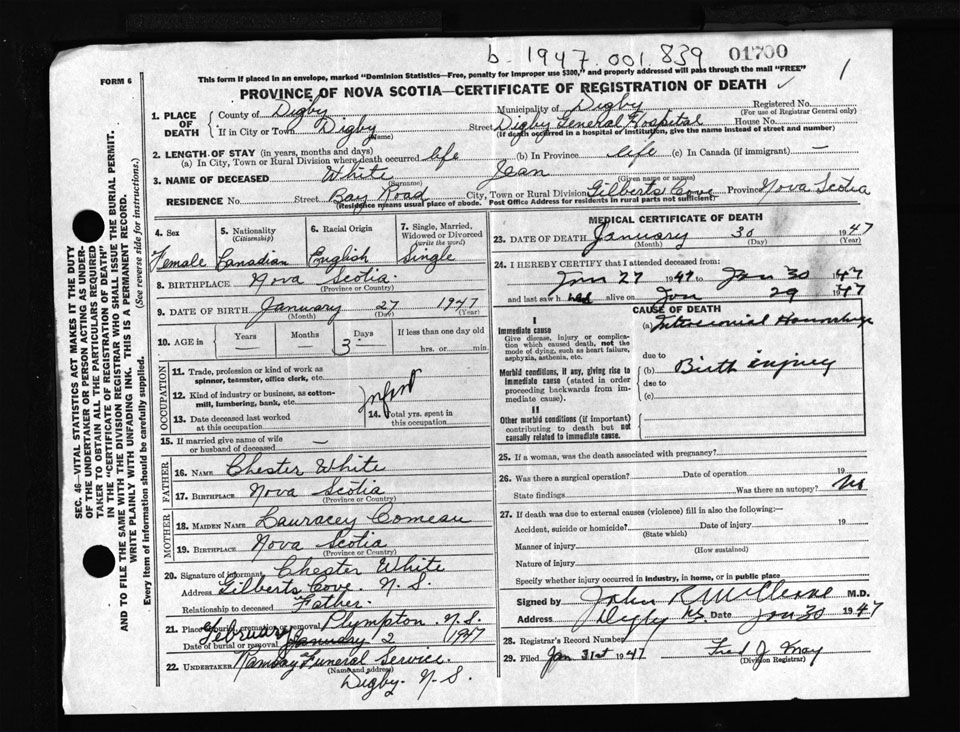 b. 1947.001.839 01700
1
This form if placed in an envelope, marked "Dominion Statistics—Free, penalty for improper use $300," and properly addressed will pass through the mail "FREE"
FORM 6
PROVINCE OF NOVA SCOTIA—CERTIFICATE OF REGISTRATION OF DEATH
1. PLACE OF DEATH
County of Digby Municipality of Digby Registered No.
(For use of Registrar General only)
If in City or Town Digby Street Digby General Hospital House No.
(Name) (If death occurred in a hospital or institution, give the name instead of street and number)
2. LENGTH OF STAY (in years, months and days)
(a) In City, Town or Rural Division where death occurred life (b) In Province life (c) In Canada (if immigrant) —
3. NAME OF DECEASED White Jean
(Surname) (Given name or names)
RESIDENCE No. Street Bay Road City, Town or Rural Division Gilberts Cove Province Nova Scotia
(Residence means usual place of abode. Post Office Address for residents in rural parts not sufficient)
4. Sex
Female
5. Nationality (Citizenship)
Canadian
6. Racial Origin
English
7. Single, Married, Widowed or Divorced (write the word)
Single
8. BIRTHPLACE Nova Scotia
(Province or Country)
9. DATE OF BIRTH January 27 1947
(Month) (Day) (Year)
10. AGE in Years Months Days If less than one day old
3 hrs. or min.
OCCUPATION
11. Trade, profession or kind of work as spinner, teamster, office clerk, etc.
12. Kind of industry or business, as cotton-mill, lumbering, bank, etc.
Infant
13. Date deceased last worked at this occupation
14. Total yrs. spent in this occupation
15. If married give name of wife or husband of deceased —
FATHER
16. NAME Chester White
17. BIRTHPLACE Nova Scotia
(Province or Country)
MOTHER
18. MAIDEN NAME Lauracey Comeau
19. BIRTHPLACE Nova Scotia
(Province or Country)
20. Signature of informant Chester White
Address Gilberts Cove, N. S.
Relationship to deceased Father.
21. Place of burial, cremation or removal Plympton N. S.
Date of burial or removal February January 2 1947
22. UNDERTAKER Ramsay Funeral Service.
(Name and address)
Digby. N. S.
MEDICAL CERTIFICATE OF DEATH
23. DATE OF DEATH January 30 1947
(Month) (Day) (Year)
24. I HEREBY CERTIFY that I attended deceased from:
Jan 27 1947 to Jan 30 1947
and last saw h her alive on Jan 29 1947
CAUSE OF DEATH
I
Immediate cause
Give disease, injury or complication which caused death, not the mode of dying, such as heart failure, asphyxia, asthenia, etc.
(a) Intracranial Hemorrhage
due to
Morbid conditions, if any, giving rise to immediate cause (stated in order proceeding backwards from immediate cause).
(b) Birth injury
due to
(c)
II
Other morbid conditions (if important) contributing to death but not causally related to immediate cause.
25. If a woman, was the death associated with pregnancy?
26. Was there a surgical operation? Date of operation 19
State findings Was there an autopsy?
27. If death was due to external causes (violence) fill in also the following:—
Accident, suicide or homicide? Date of injury 19
(State which)
Manner of injury
(How sustained)
Nature of injury
Specify whether injury occurred in industry, in home, or in public place
Signed by John R. M.D.
Address Digby N.S. Date Jan 30 1947
28. Registrar's Record Number
29. Filed Jan 31st 1947 Fred J. May
(Division Registrar)
SEC. 46—VITAL STATISTICS ACT MAKES IT THE DUTY
OF THE UNDERTAKER OR PERSON ACTING AS UNDER-
TAKER TO OBTAIN ALL THE PARTICULARS REQUIRED
IN THE "CERTIFICATE OF REGISTRATION OF DEATH"
AND TO FILE THE SAME WITH THE DIVISION REGISTRAR WHO SHALL ISSUE THE BURIAL PERMIT.
WRITE PLAINLY WITH UNFADING INK. THIS IS A PERMANENT RECORD.
Every item of information should be carefully supplied. (See reverse side for instructions.)